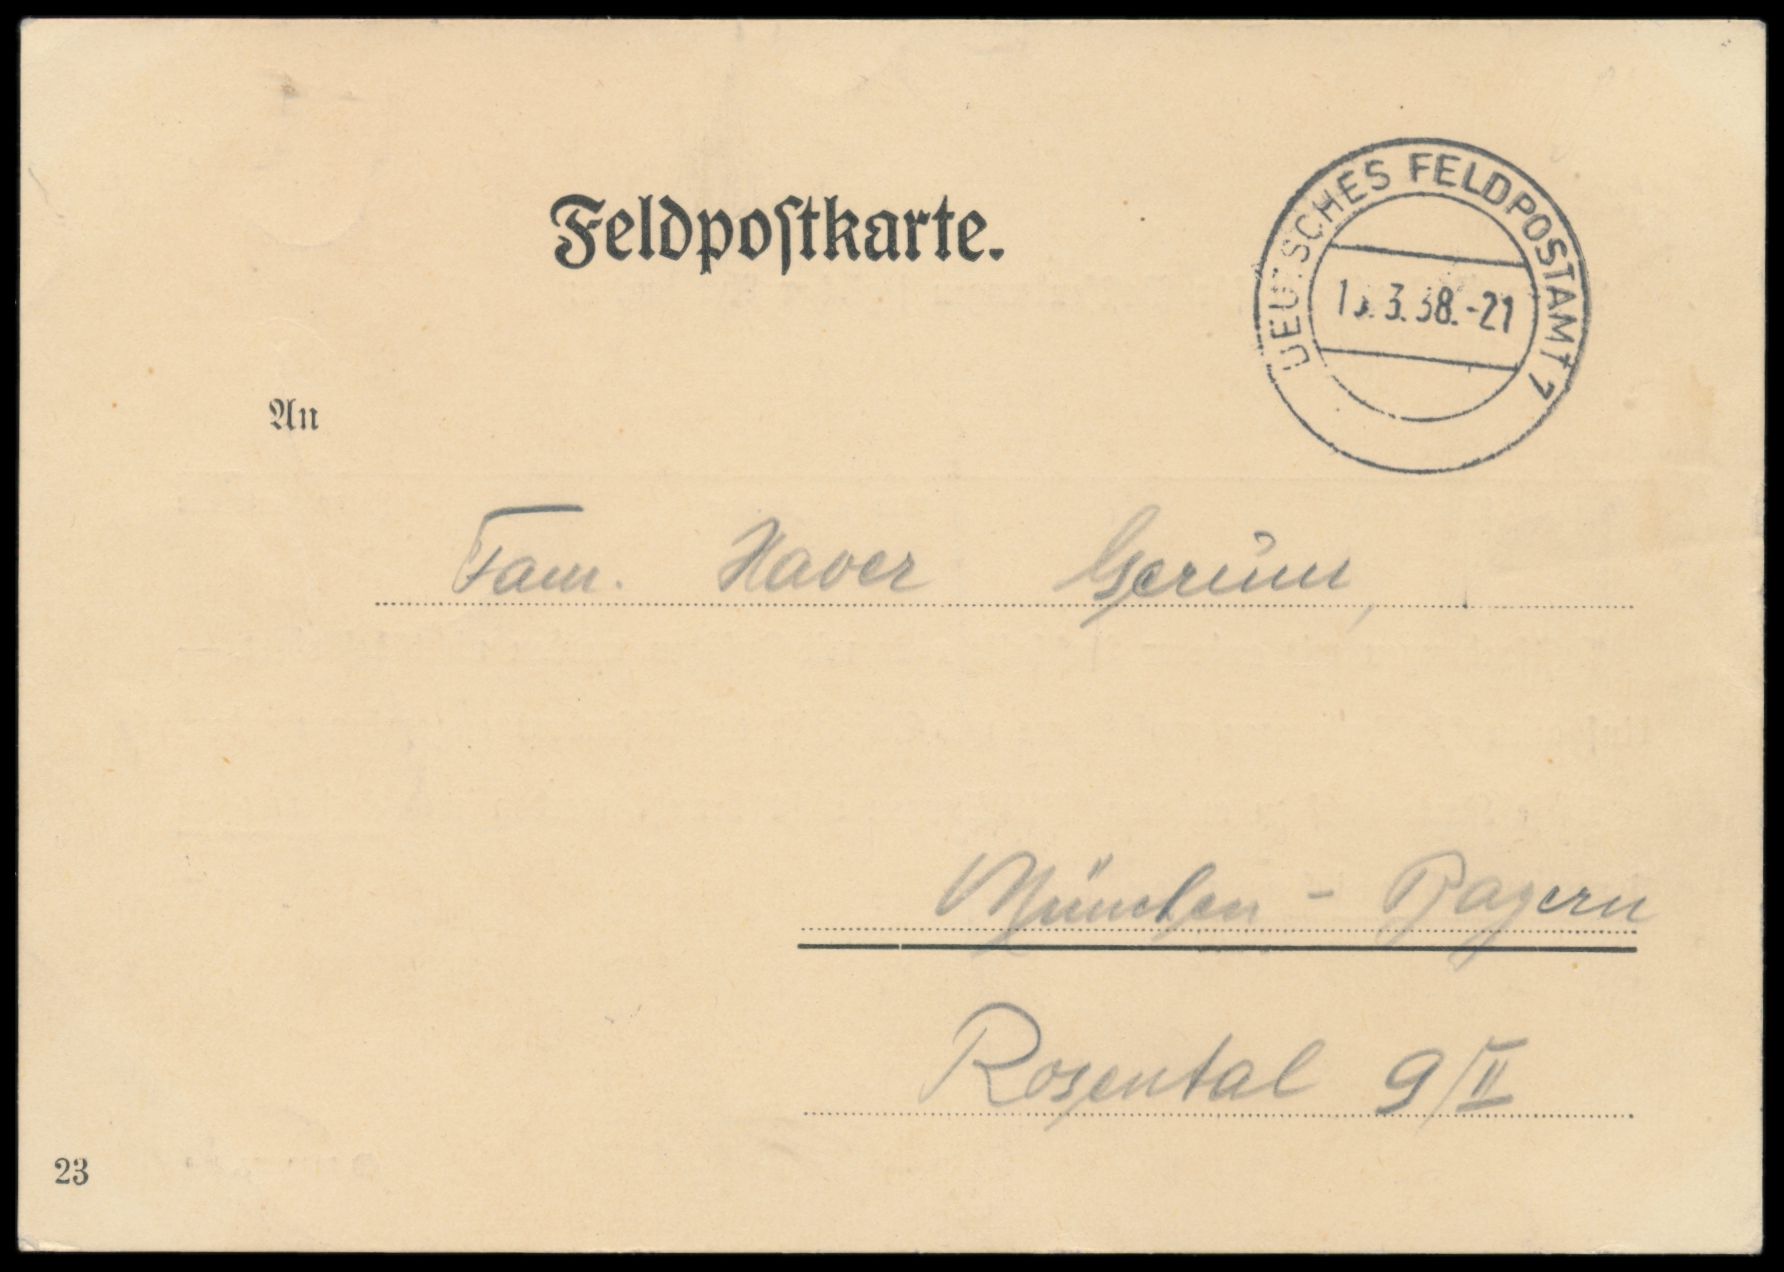 Feldpostkarte.
DEUTSCHES FELDPOSTAMT 7
3.38.-21
An
Fam. Xaver Gerum,
München - Bayern
Rosental 9/II
23